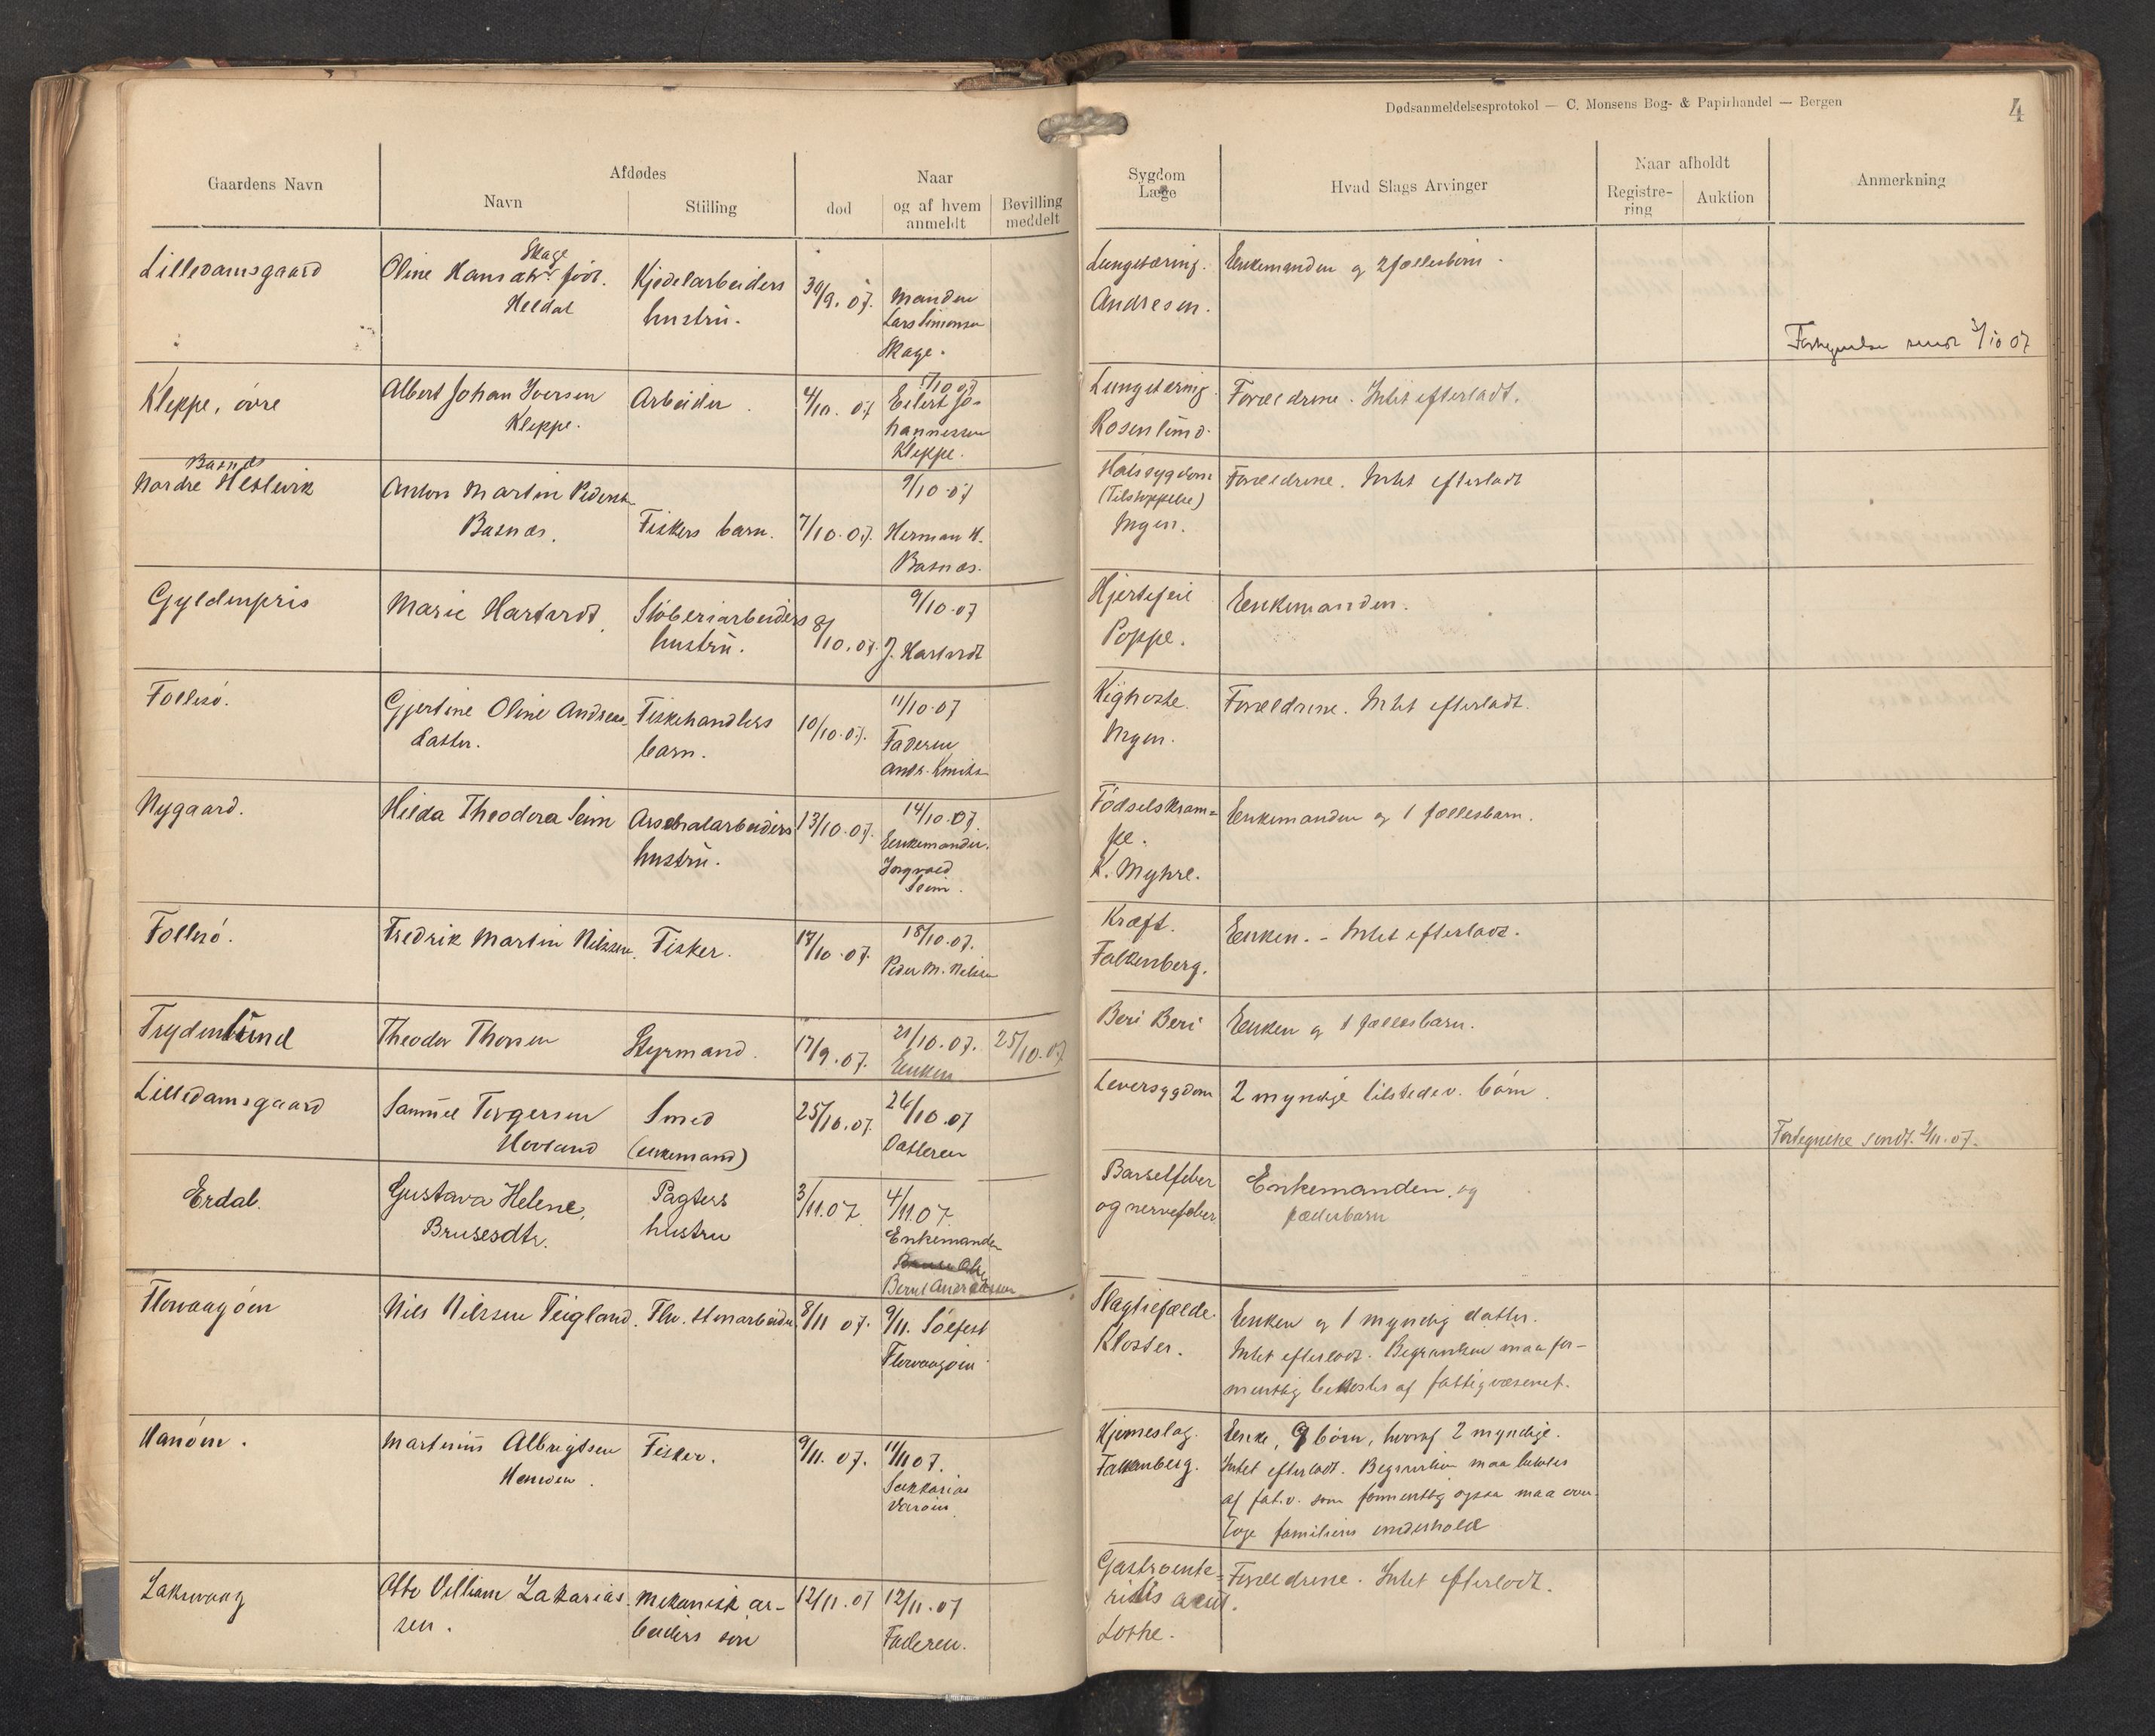 Dødsanmeldelsesprotokol — C. Monsens Bog- & Papirhandel — Bergen
4
Gaardens Navn
Afdødes
Navn
Stilling
død
Naar
og af hvem
anmeldt
Bevilling
meddelt
Sygdom
Læge
Hvad Slags Arvinger
Naar afholdt
Registre-
ring
Auktion
Anmerkning
Lilledamsgaard
Oline Hansdtr. født.
Skage
Heldal
Kjedelarbeiders
hustru.
30/9. 07.
Manden
Lars Simonsen
Skage.
Lungetæring.
Andresen.
Enkemanden og 2 fællesbørn.
Fortegnelse sendt 3/10 07
Kleppe, øvre
Albert Johan Iversen
Kleppe.
Arbeider.
4/10. 07
5/10 07
Eilert Jo-
hannessen
Kleppe.
Lungetæring.
Rosenlund.
Forældrene. Intet efterladt.
Basnes
Nordre Hetlevik
Anton Martin Pedersen
Basnæs.
Fiskers barn.
7/10.07.
9/10.07
Herman H.
Basnæs.
Halssygdom
(Tilstoppelse)
Ingen.
Forældrene. Intet efterladt
Gyldenpris
Marie Hartardt.
Støberiarbeiders
hustru.
8/10.07.
9/10.07
J. Hartardt
Hjertefeil
Poppe.
Enkemanden.
Follesø.
Gjertine Oline Andreas-
datter.
Fiskehandlers
barn.
10/10.07.
11/10.07
Faderen
Andr. Knuts-
Kighoste.
Ingen.
Forældrene. Intet efterladt.
Nygaard.
Hilda Theodora Seim
Arsenalarbeiders
hustru.
13/10.07.
14/10.07.
Enkemanden.
Ingvald
Seim.
Fødselskram-
pe.
K. Myhre.
Enkemanden og 1 fællesbarn.
Follesø.
Fredrik Martin Nilssen.
Fisker.
17/10.07.
18/10.07.
Peder M. Nilsen
Kræft.
Falkenberg.
Enken. - Intet efterladt.
Frydenlund
Theodor Thorsen
Styrmand.
17/9.07.
21/10.07.
Enken
25/10.07
Beri Beri
Enken og 1 fællesbarn.
Lilledamsgaard
Samuel Torgersen
Hovland
Smed
(enkemand)
25/10.07.
26/10.07
Datteren
Leversygdom
2 myndige tilstedev. børn.
Fortegnelse sendt. 2/11.07.
Erdal.
Gustava Helene,
Brusesdtr.
Pagters
hustru
3/11.07.
4/11.07.
Enkemanden
Bernt Andreassen
Barselfeber
og nervefeber
Enkemanden, og
særbarn
Florvaagøen
Nils Nilssen Teigland.
Flv. stenarbeider.
8/11 07.
9/11. Solfest
Florvaagøen
Slagtilfælde.
Kloster.
Enken og 1 myndig datter.
Intet efterladt. Begravelsen maa for-
mentlig bekostes af fattigvæsenet.
Hanøen.
Martinus Albrigtsen
Hanøen.
Fisker.
9/11. 07.
11/11 07.
Sakkarias
Hjerneslag.
Falkenberg.
Enke, 9 børn, hvoraf 2 myndige.
Intet efterladt. Begravelsen maa betales
af fat.v. som formentlig ogsaa maa over-
tage familiens underhold
Laksevaag
Otto Villiam Zakarias-
sen.
Mekanisk ar-
beiders søn
12/11.07
12/11.07
Faderen.
Gastroente-
ritis acut.
Lothe.
Forældrene. Intet efterladt.